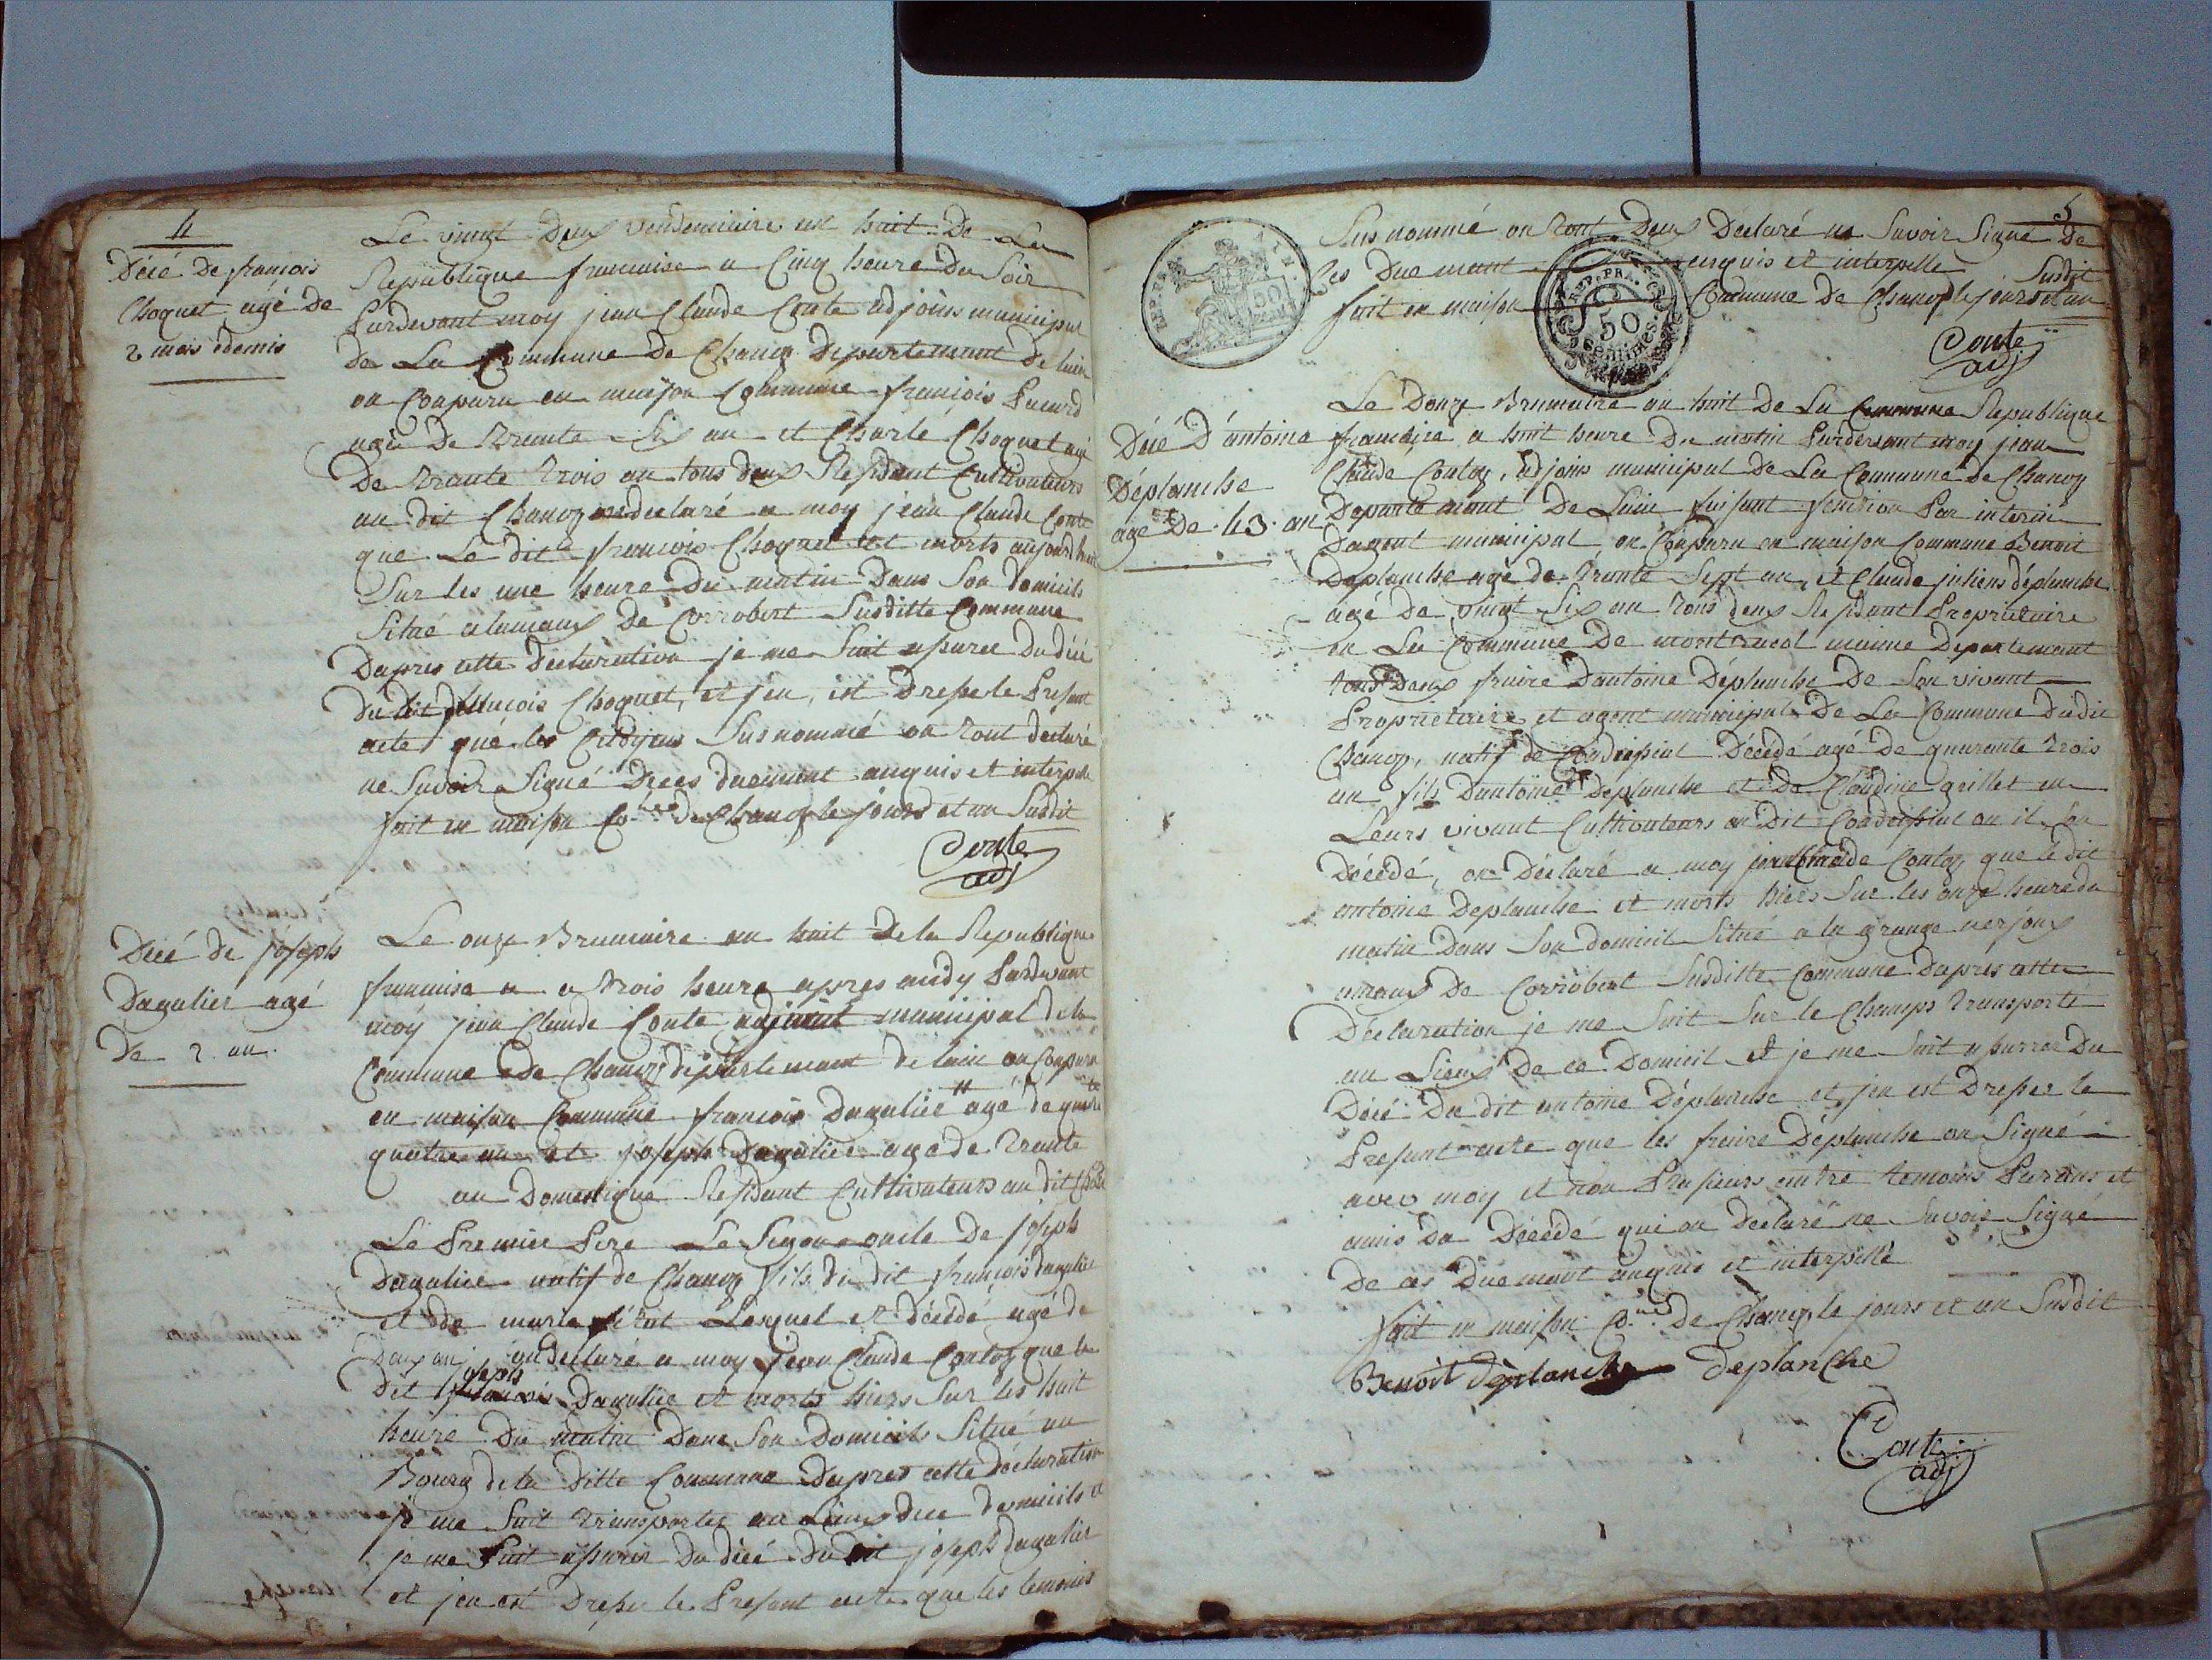 4
Décé de françois
Choquet agé de
2 mois edemis
Le vingt Deux vendemiaire an huit De La
Republique francaise a Cinq heure Du Soir
Pardevant moy jean Claude Conte adjoins municipal
de La Commune De Chanoz Departemant De lain
on Conparu en maison Commune françois Picard
agée De Trente Six an et Charle Choquet agé
De Trante Trois an tous deux Residant Cultivateurs
au dit Chanoz on declaré a moy jean Claude Conte
que Le dit françois Choquet et morts aujourdhui
Sur les une heure Du matin Dans Son domicils
Situé a lameaux De Corrobert Susditte Commune
Dapres cette Declaration je me Suit apuree Du décé
Du dit françois Choquet, et jen, est Dresse le Present
acte que les Citoyens Susnommé on Tout déclaré
ne Savoir Signé Deces duemant enquis et interpelle
fait en maison Co.ne De Chanoz le jours et an Susdit
Conte
adj
Décé de joseph
Dagalier agé
De 2 an.
Le onze Brumaire an huit De la Republique
francaise a a Trois heure apres midy Pardevant
moy jean Claude Conte adjoint municipal de la
Commune de Chanoz departemant de lain on Conparu
en maison Commune françois Dagalier agé de
quatre an et joseph Dagalier agé de Trente
an Domestique Residant Cultivateurs au dit
Le Premier Pere Le Segon oncle De joseph
Dagalier natif de Chanoz fils du dit françois dagalier
et de marie Lesquel et Décédé agé de
Deux an on declaré a moy jean Claude Contoz que le
dit joseph Dagalier et morts hiers Sur les huit
heure Du matin Dans Son Domicils Situé au
Bourg de la Ditte Commune Dapres cette declaration
je me Suit Transportée au Lieux dece domicils et
je me Suit apurée Du décé Du dit joseph Dagalier
et jen est Dresse le Present acte que les temoins
5
Susnommé on Tout Deux Declaré ne Savoir Signé De
Ces Due mant enquis et interpelle
fait en maison Commune De Chanoz le jours et an
Susdit
REP. FRA.
50
CENTIMES
Conte
adj
Décé D'antoine
Déplanche
agé De 43 an
Le Douze Brumaire an huit De La Commune Republique
francaise a huit heure Du matin Pardevant moy jean
Claude Contoz, adjoins municipal De La Commune De Chanoz
Departe mant De Lain faisant fonction Par interin
Dagent municipal on Conparu en maison Commune Benoit
Deplanche agé de Trante Sept an, et Claude juliens déplanche
agé De vingt Six an Tous deux Residant Proprietaire
en La Commune De montracol meime Departemant
tous Deux fraire Dantoine Déplanche De Son vivant
Proprietaire et agent municipal De La Commune Dudit
Chanoz, natif de Condeissiat Décédé agé De quarante Trois
an fils Dantoine Déplanche et De Claudine guillet en
Leurs vivant Cultivateurs au Dit Condeissiat ou il Son
Décédé, on Déclaré a moy jean Claude Contoz que ledit
antoine Deplanche et morts hiers Sur les onze heure du
matin Dans Son domicil Situé a la grange nerjoux
ameaux De Corrobert Susditte Commune Dapres cette
Déclaration je me Suit Sur le Champs Transporté
au Lieux De ce Domicil et je me Suit apurree Du
Décé Du dit antoine Déplanche et jen est Dressee le
Present acte que les fraire Déplanche on Signé
avec moy et non Plusieurs autre temoins Parans et
amis Du Décédé qui on Declaré ne Savoir Signé
De ces Due mant enquis et interpellé
fait en maison Co.ne De Chanoz le jours et an Susdit
Benoit déplanche deplanche
Conte
adj